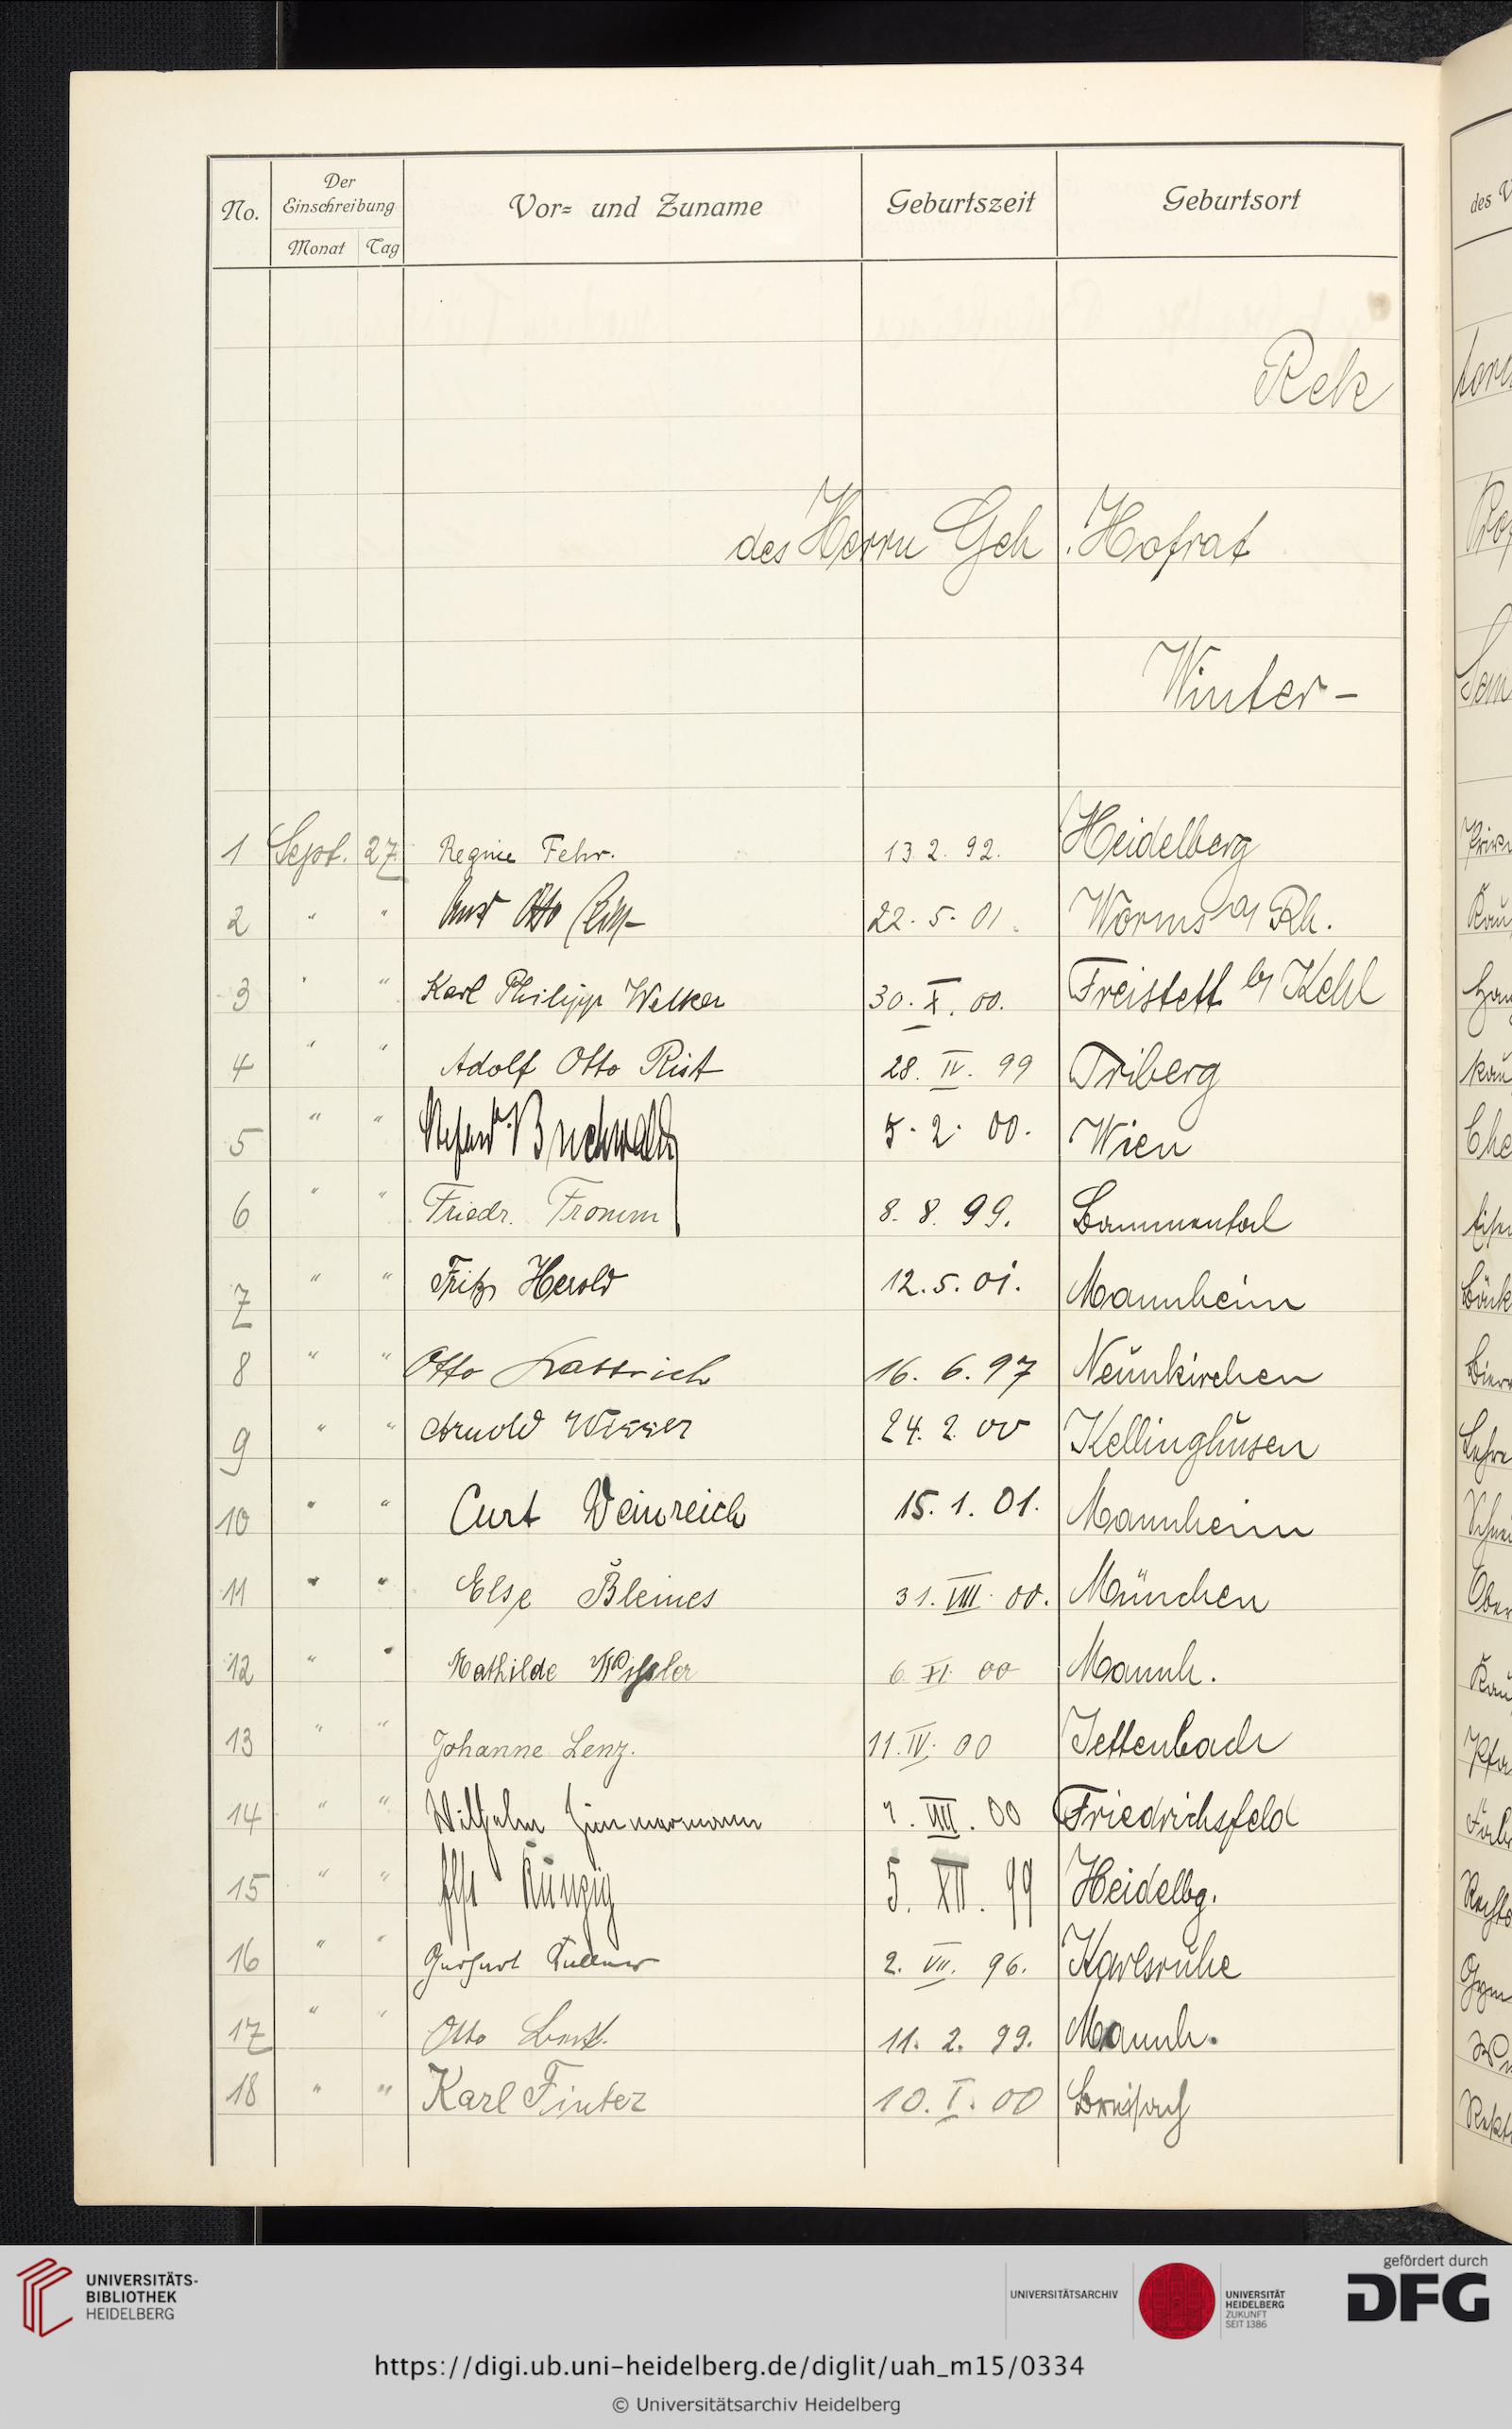 No. Der Einschreibung Vor= und Zuname Geburtszeit Geburtsort
Monat Tag
des V
Rek
des Herrn Geh. Hofrat
Winter-
1 Sept. 27 Regine Fehr. 13. 2. 92. Heidelberg
2 " " Otto 22. 5. 01. Worms a/ Rh.
3 " " Karl Philipp Welker 30. X. 00. Freistett b/ Kehl
4 " " Adolf Otto Rist 28. IV. 99 Triberg
5 " " Buchwald 5. 2. 00. Wien
6 " " Friedr. Fromm 8. 8. 99. Bammental
7 " " Fritz Herold 12. 5. 01. Mannheim
8 " " Otto Kassrich 16. 6. 97 Neunkirchen
9 " " Arnold Wisser 24. 2. 00 Kellinghusen
10 " " Curt Weinreich 15. 1. 01. Mannheim
11 " " Else Bleines 31. VIII. 00. München
12 " " Mathilde 6. XI. 00 Mannh.
13 " " Johanne Lenz. 11. IV. 00 Jettenbach
14 " " Wilhelm Zimmermann VIII. 00 Friedrichsfeld
15 " " Else Künzig 5. XII. 99 Heidelbg.
16 " " Gerhart 2. VII. 96. Karlsruhe
17 " " Otto 11. 2. 99. Mannh.
18 " " Karl Finter 10. I. 00 Breisach
UNIVERSITÄTS-
BIBLIOTHEK
HEIDELBERG
UNIVERSITÄTSARCHIV
UNIVERSITÄT
HEIDELBERG
ZUKUNFT
SEIT 1386
gefördert durch
DFG
https://digi.ub.uni-heidelberg.de/diglit/uah_m15/0334
© Universitätsarchiv Heidelberg